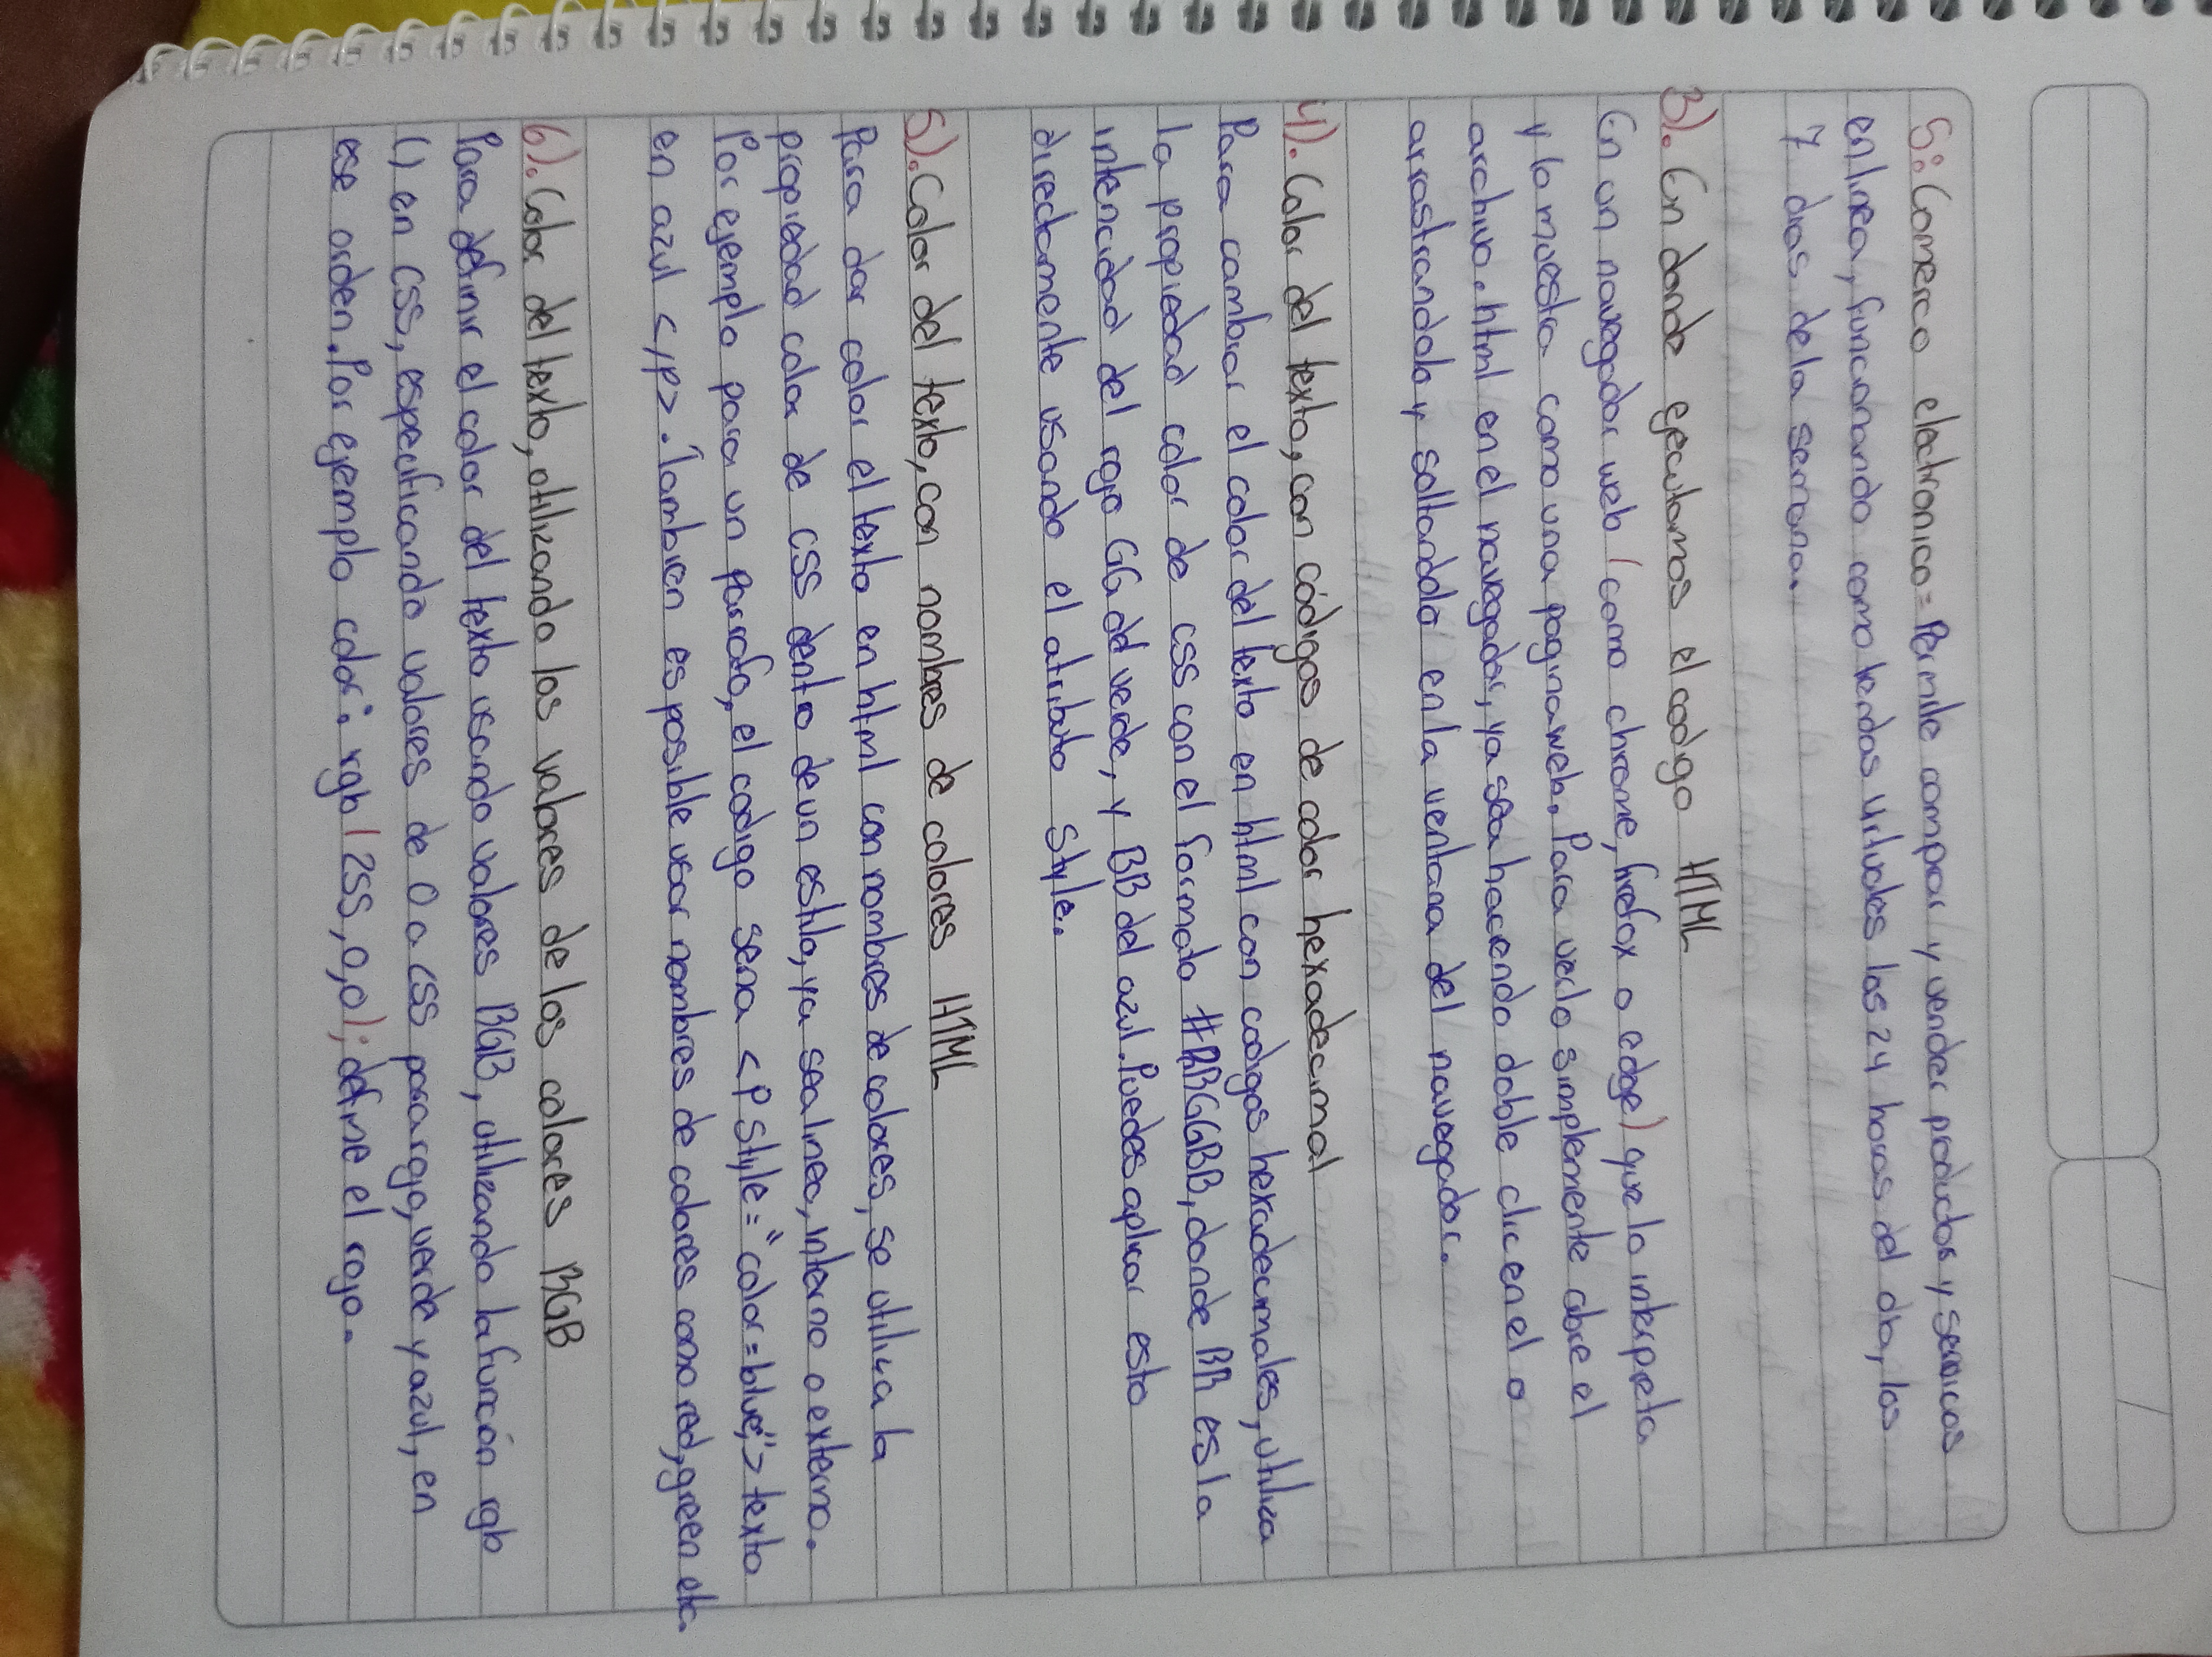 5: Comercio electronico = Permite comprar y vender productos y servicios
en linea, funcionando como tendas virtuales las 24 horas del dia, los
7 dias de la semana.
3). En donde ejecutamos el codigo HTML
En un navegador web (como chrome, firefox o edge) que lo interpreta
y lo muestra como una pagina web. Para verlo simplemente abre el
archivo.html en el navegador, ya sea haciendo doble clic en el o
arrastrandolo y soltandolo en la ventana del navegador.
4). Color del texto, con códigos de color hexadecimal
Para cambiar el color del texto en html con codigos hexadecimales, utiliza
la propiedad color de css con el formato #RRGGBB, donde RR es la
intencidad del rojo GG del verde, y BB del azul. Puedes aplicar esto
directamente usando el atributo style.
5). Color del texto, con nombres de colores HTML
Para dar color el texto en html con nombres de colores, se utiliza la
propiedad color de CSS dentro de un estilo, ya sea linea, interno o externo.
Por ejemplo para un parrafo, el codigo seria <P style="color=blue;"> texto
en azul </p>. Tambien es posible usar nombres de colores como red, green etc.
6). Color del texto, utilizando los valores de los colores RGB
Para definir el color del texto usando valores RGB, utilizando la función rgb
() en CSS, especificando valores de 0 a CSS para rojo, verde y azul, en
ese orden. Por ejemplo color: rgb (255,0,0); define el rojo.